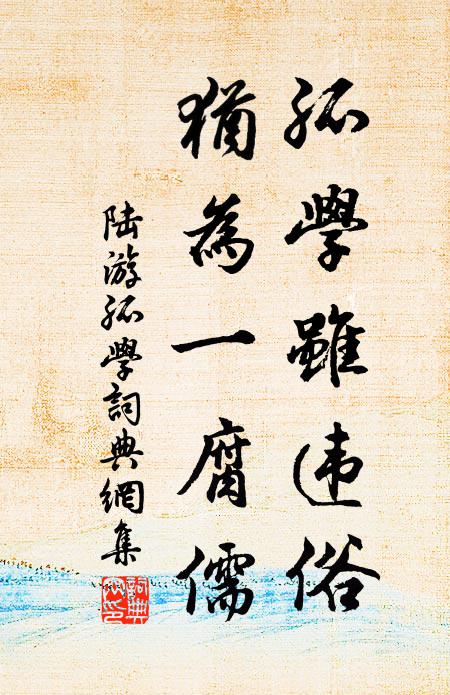 孤學雖违俗
猶為一腐儒
陆游孤學詞典網集